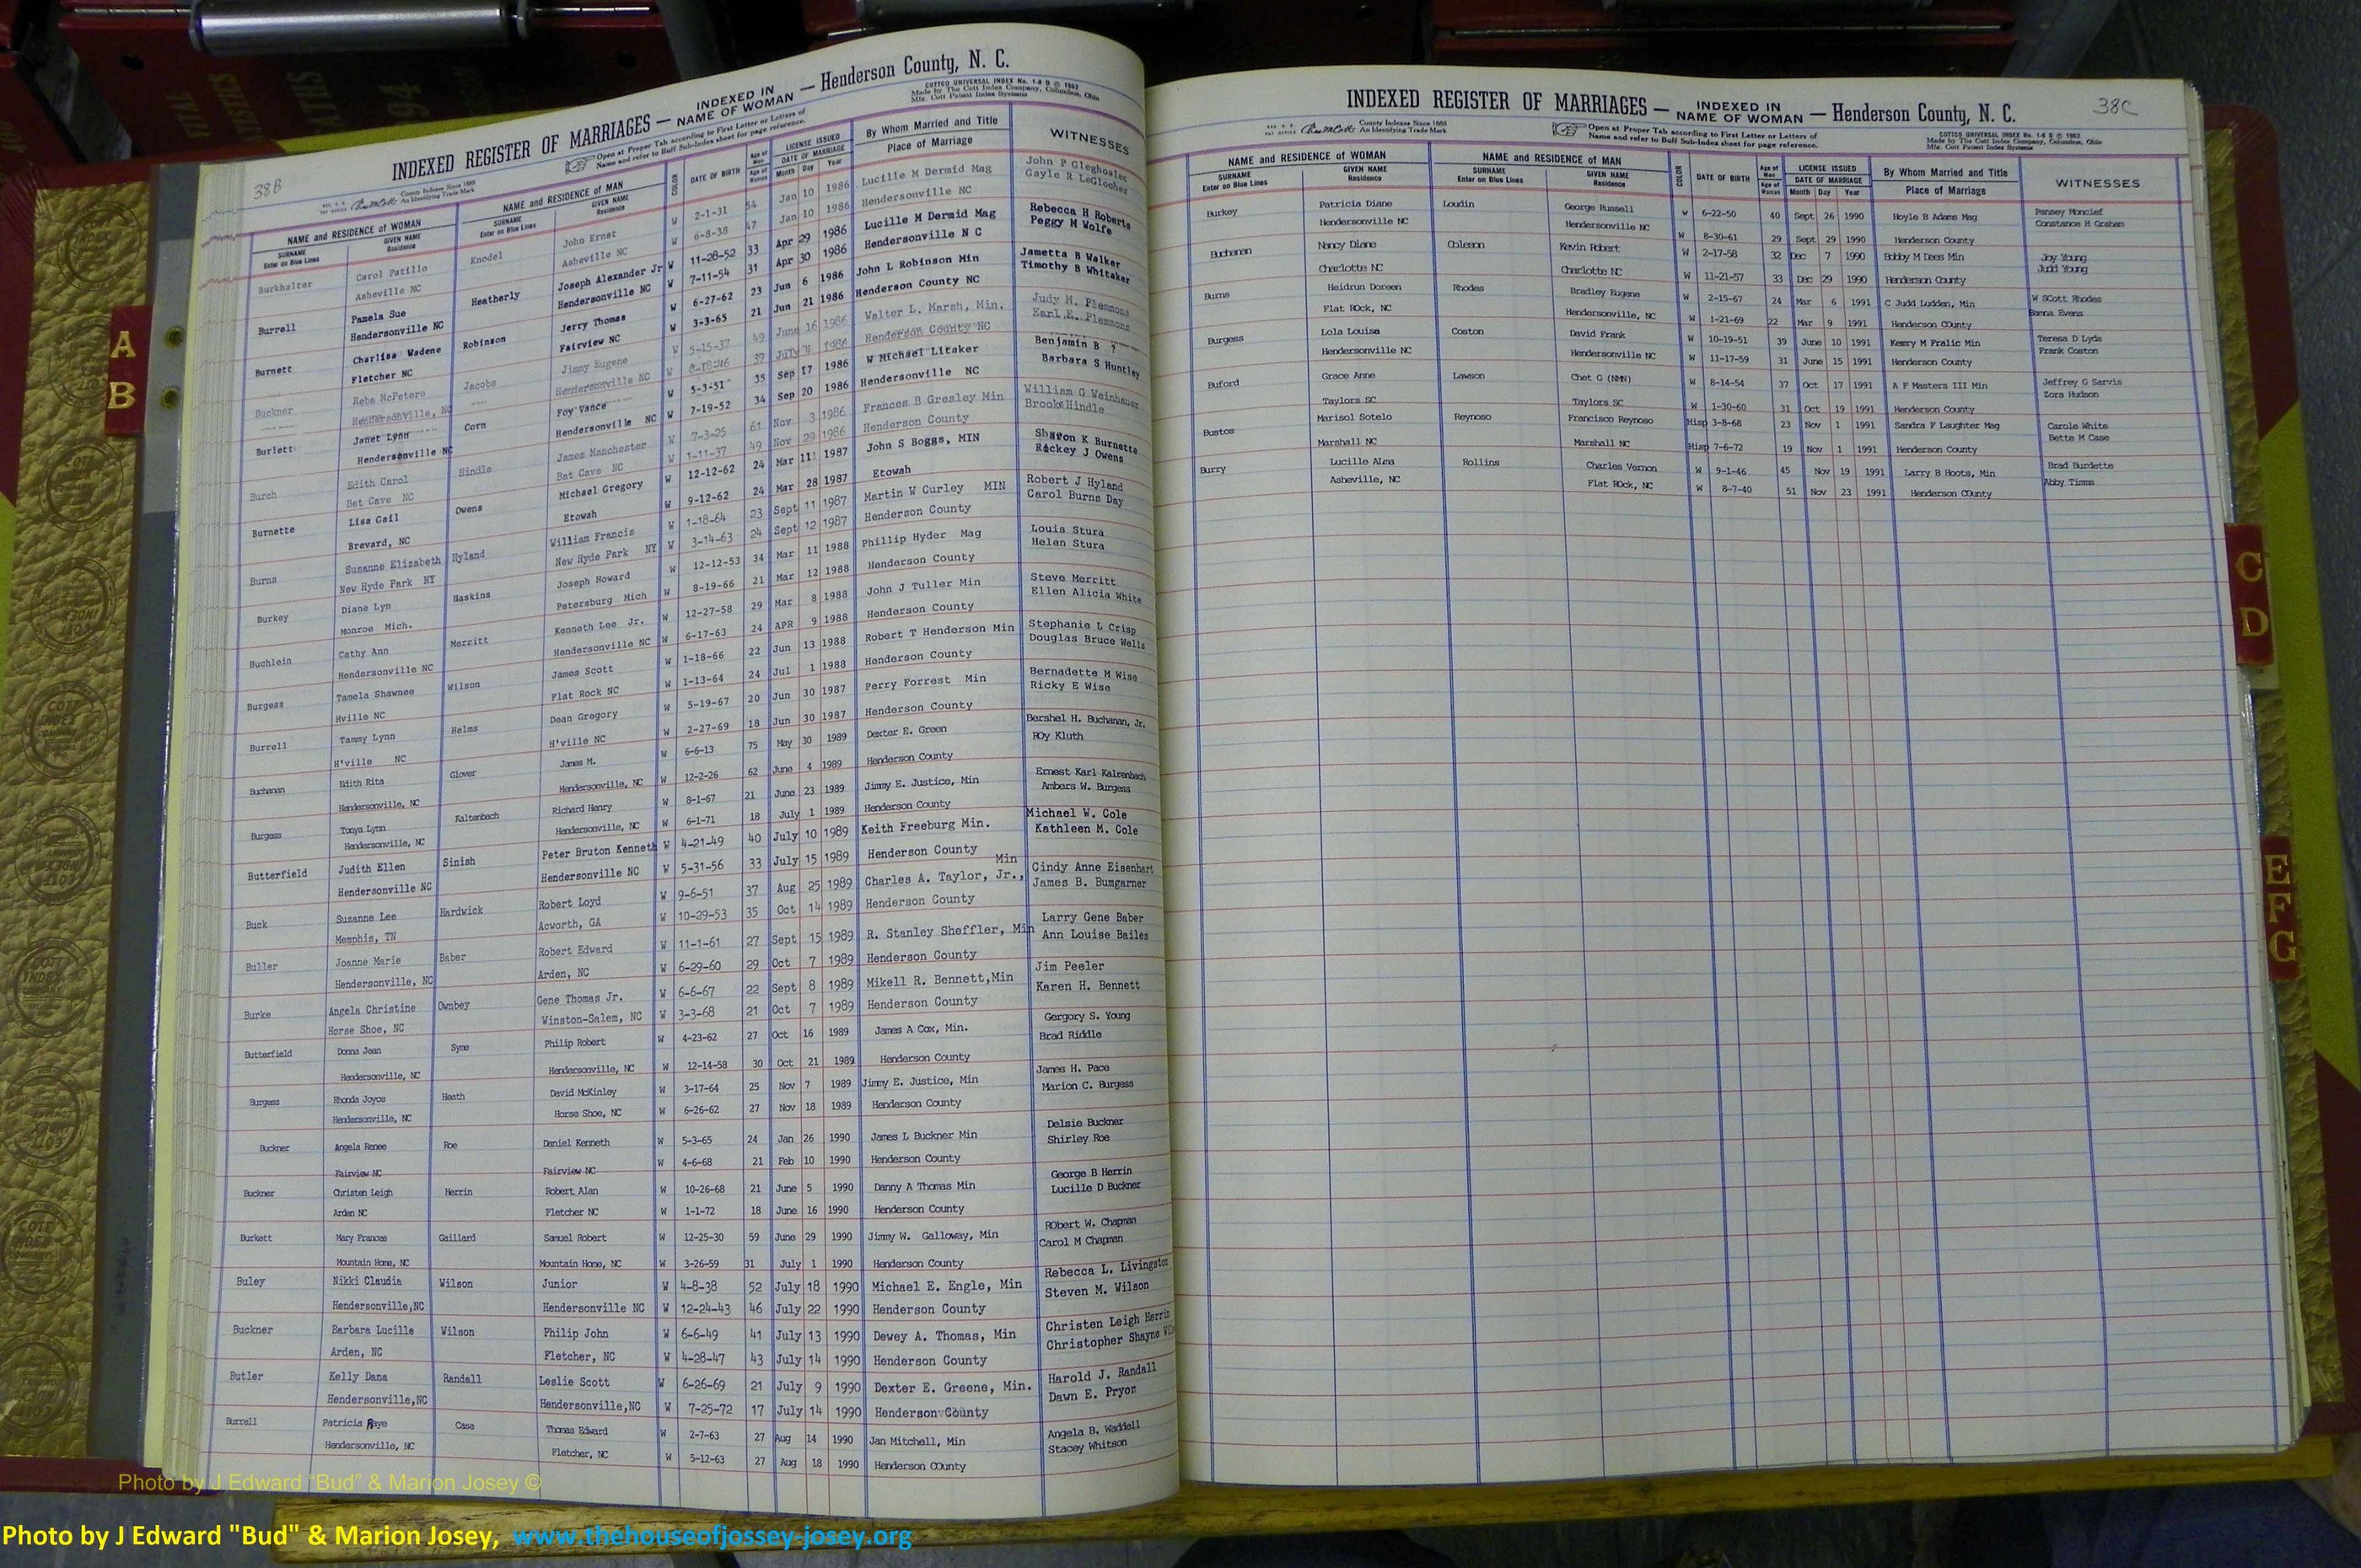 38B
INDEXED REGISTER OF MARRIAGES — INDEXED IN NAME OF WOMAN — Henderson County, N. C.
County Indexes Since 1888
An Identifying Trade Mark
Open at Proper Tab according to First Letter or Letters of
Name and refer to Buff Sub-Index sheet for page reference.
COTTCO UNIVERSAL INDEX No. 1-8 B © 1962
Made by The Cott Index Company, Columbus, Ohio
Mfs. Cott Patent Index Systems
NAME and RESIDENCE OF WOMAN NAME and RESIDENCE OF MAN COLOR DATE OF BIRTH Age of Man LICENSE ISSUED By Whom Married and Title WITNESSES
SURNAME GIVEN NAME SURNAME GIVEN NAME Age of Woman DATE OF MARRIAGE Place of Marriage
Enter on Blue Lines Residence Enter on Blue Lines Residence Month Day Year
Burkhalter Carol Patillo Knodel John Ernst W 2-1-31 54 Jan 10 1986 Lucille M Dermid Mag John P Gleghoalec
Asheville NC Asheville NC W 6-8-38 47 Jan 10 1986 Hendersonville NC Gayle R LeGloober
Burrell Pamela Sue Heatherly Joseph Alexander Jr W 11-28-52 33 Apr 29 1986 Lucille M Dermid Mag Rebecca H Roberts
Hendersonville NC Hendersonville NC W 7-11-54 31 Apr 30 1986 Hendersonville N C Peggy M Wolfe
Burnett Charlisa Wadene Robinson Jerry Thomas W 6-27-62 23 Jun 6 1986 John L Robinson Min Jametta B Walker
Fletcher NC Fairview NC W 3-3-65 21 Jun 21 1986 Henderson County NC Timothy B Whitaker
Buckner Reba McPeters Jacobs Jimmy Eugene W 5-15-37 49 June 16 1986 Walter L. Marsh, Min. Judy M. Plemmons
Hendersonville, NC Hendersonville NC W 8-18-46 39 July 4 1986 Henderson County NC Earl E. Plemmons
Burlett Janet Lynn Corn Foy Vance W 5-3-51 35 Sep 17 1986 W Michael Litaker Benjamin B ?
Hendersonville NC Hendersonville NC W 7-19-52 34 Sep 20 1986 Hendersonville NC Barbara S Huntley
Burch Edith Carol Hindle James Manchester W 7-3-25 61 Nov 3 1986 Frances B Gresley Min William G Weinhauer
Bat Cave NC Bat Cave NC W 1-11-37 49 Nov 29 1986 Henderson County Brooke Hindle
Burnette Lisa Gail Owens Michael Gregory W 12-12-62 24 Mar 11 1987 John S Boggs, MIN Sharon K Burnette
Brevard, NC Etowah W 9-12-62 24 Mar 28 1987 Etowah Rickey J Owens
Burns Susanne Elizabeth Hyland William Francis W 1-18-64 23 Sept 11 1987 Martin W Curley MIN Robert J Hyland
New Hyde Park NY New Hyde Park NY W 3-14-63 24 Sept 12 1987 Henderson County Carol Burns Day
Burkey Diane Lyn Haskins Joseph Howard W 12-12-53 34 Mar 11 1988 Phillip Hyder Mag Louis Stura
Monroe Mich. Petersburg Mich W 8-19-66 21 Mar 12 1988 Henderson County Helen Stura
Buchlein Cathy Ann Merritt Kenneth Lee Jr. W 12-27-58 29 Mar 8 1988 John J Tuller Min Steve Merritt
Hendersonville NC Hendersonville NC W 6-17-63 24 APR 9 1988 Henderson County Ellen Alicia White
Burgess Tamela Shawnee Wilson James Scott W 1-18-66 22 Jun 13 1988 Robert T Henderson Min Stephanie L Crisp
Hville NC Flat Rock NC W 1-13-64 24 Jul 1 1988 Henderson County Douglas Bruce Wells
Burrell Tammy Lynn Helms Dean Gregory W 5-19-67 20 Jun 30 1987 Perry Forrest Min Bernadette M Wise
H'ville NC H'ville NC W 2-27-69 18 Jun 30 1987 Henderson County Ricky E Wise
Buchanan Edith Rita Glover James M. W 6-6-13 75 May 30 1989 Dexter E. Green Bershel H. Buchanan, Jr.
Hendersonville, NC Hendersonville, NC W 12-2-26 62 June 4 1989 Henderson County ROy Kluth
Burgess Tonya Lynn Kaltenbach Richard Henry W 8-1-67 21 June 23 1989 Jimmy E. Justice, Min Ernest Karl Kalrenbach
Hendersonville, NC Hendersonville, NC W 6-1-71 18 July 1 1989 Henderson County Ambers W. Burgess
Butterfield Judith Ellen Sinish Peter Bruton Kenneth W 4-21-49 40 July 10 1989 Keith Freeburg Min. Michael W. Cole
Hendersonville NC Hendersonville NC W 5-31-56 33 July 15 1989 Henderson County Kathleen M. Cole
Buck Suzanne Lee Hardwick Robert Loyd W 9-6-51 37 Aug 25 1989 Charles A. Taylor, Jr., Min Cindy Anne Eisenhart
Memphis, TN Acworth, GA W 10-29-53 35 Oct 14 1989 Henderson County James B. Bumgarner
Buller Joanne Marie Baber Robert Edward W 11-1-61 27 Sept 15 1989 R. Stanley Sheffler, Min Larry Gene Baber
Hendersonville, NC Arden, NC W 6-29-60 29 Oct 7 1989 Henderson County Ann Louise Bailes
Burke Angela Christine Ownbey Gene Thomas Jr. W 6-6-67 22 Sept 8 1989 Mikell R. Bennett,Min Jim Peeler
Horse Shoe, NC Winston-Salem, NC W 3-3-68 21 Oct 7 1989 Henderson County Karen H. Bennett
Butterfield Donna Jean Syme Philip Robert W 4-23-62 27 Oct 16 1989 James A Cox, Min. Gergory S. Young
Hendersonville, NC Hendersonville, NC W 12-14-58 30 Oct 21 1989 Henderson County Brad Riddle
Burgess Rhonda Joyce Heath David McKinley W 3-17-64 25 Nov 7 1989 Jimmy E. Justice, Min James H. Pace
Hendersonville, NC Horse Shoe, NC W 6-26-62 27 Nov 18 1989 Henderson County Marion C. Burgess
Buckner Angela Renee Roe Daniel Kenneth W 5-3-65 24 Jan 26 1990 James L Buckner Min Delsie Buckner
Fairview NC Fairview NC W 4-6-68 21 Feb 10 1990 Henderson County Shirley Roe
Buckner Christen Leigh Herrin Robert Alan W 10-26-68 21 June 5 1990 Danny A Thomas Min George B Herrin
Arden NC Fletcher NC W 1-1-72 18 June 16 1990 Henderson County Lucille D Buckner
Burkett Mary Frances Gaillard Samuel Robert W 12-25-30 59 June 29 1990 Jimmy W. Galloway, Min RObert W. Chapman
Mountain Home, NC Mountain Home, NC W 3-26-59 31 July 1 1990 Henderson County Carol M Chapman
Buley Nikki Claudia Wilson Junior W 4-8-38 52 July 18 1990 Michael E. Engle, Min Rebecca L. Livingston
Hendersonville,NC Hendersonville NC W 12-24-43 46 July 22 1990 Henderson County Steven M. Wilson
Buckner Barbara Lucille Wilson Philip John W 6-6-49 41 July 13 1990 Dewey A. Thomas, Min Christen Leigh Herrin
Arden, NC Fletcher, NC W 4-28-47 43 July 14 1990 Henderson County Christopher Shayne
Butler Kelly Dana Randall Leslie Scott W 6-26-69 21 July 9 1990 Dexter E. Greene, Min. Harold J. Randall
Hendersonville,NC Hendersonville,NC W 7-25-72 17 July 14 1990 Henderson County Dawn E. Pryor
Burrell Patricia Raye Case Thomas Edward W 2-7-63 27 Aug 14 1990 Jan Mitchell, Min Angela B. Waddell
Hendersonville, NC Fletcher, NC W 5-12-63 27 Aug 18 1990 Henderson COunty Stacey Whitson
38C
INDEXED REGISTER OF MARRIAGES — INDEXED IN NAME OF WOMAN — Henderson County, N. C.
County Indexes Since 1888
An Identifying Trade Mark
Open at Proper Tab according to First Letter or Letters of
Name and refer to Buff Sub-Index sheet for page reference.
COTTCO UNIVERSAL INDEX No. 1-8 B © 1962
Made by The Cott Index Company, Columbus, Ohio
Mfs. Cott Patent Index Systems
NAME and RESIDENCE OF WOMAN NAME and RESIDENCE OF MAN COLOR DATE OF BIRTH Age of Man LICENSE ISSUED By Whom Married and Title WITNESSES
SURNAME GIVEN NAME SURNAME GIVEN NAME Age of Woman DATE OF MARRIAGE Place of Marriage
Enter on Blue Lines Residence Enter on Blue Lines Residence Month Day Year
Burkey Patricia Diane Loudin George Russell W 6-22-50 40 Sept 26 1990 Hoyle B Adams Mag Pansey Moncief
Hendersonville NC Hendersonville NC W 8-30-61 29 Sept 29 1990 Henderson County Constance H Graham
Buchanan Nancy Diane Coleson Kevin Robert W 2-17-58 32 Dec 7 1990 Bobby M Dees Min Joy Young
Charlotte NC Charlotte NC W 11-21-57 33 Dec 29 1990 Henderson County Judd Young
Burns Heidrun Doreen Rhodes Bradley Eugene W 2-15-67 24 Mar 6 1991 C Judd Ludden, Min W SCott Rhodes
Flat ROck, NC Hendersonville, NC W 1-21-69 22 Mar 9 1991 Henderson COunty Banna Evens
Burgess Lola Louise Coston David Frank W 10-19-51 39 June 10 1991 Kemry M Fralic Min Teresa D Lyda
Hendersonville NC Hendersonville NC W 11-17-59 31 June 15 1991 Henderson County Frank Coston
Buford Grace Anne Lawson Chet G (NMN) W 8-14-54 37 Oct 17 1991 A F Masters III Min Jeffrey G Sarvis
Taylors SC Taylors SC W 1-30-60 31 Oct 19 1991 Henderson County Zora Hudson
Bustos Marisol Sotelo Reynoso Francisco Reynoso Hisp 3-8-68 23 Nov 1 1991 Sandra F Laughter Mag Carole White
Marshall NC Marshall NC Hisp 7-6-72 19 Nov 1 1991 Henderson County Bette M Case
Burry Lucille Alma Rollins Charles Vernon W 9-1-46 45 Nov 19 1991 Larry B Hoots, Min Brad Burdette
Asheville, NC Flat ROck, NC W 8-7-40 51 Nov 23 1991 Henderson COunty Abby Timms
A
B
C
D
E
F
G
Photo by J Edward "Bud" & Marion Josey ©
Photo by J Edward "Bud" & Marion Josey, www.thehouseofjossey-josey.org